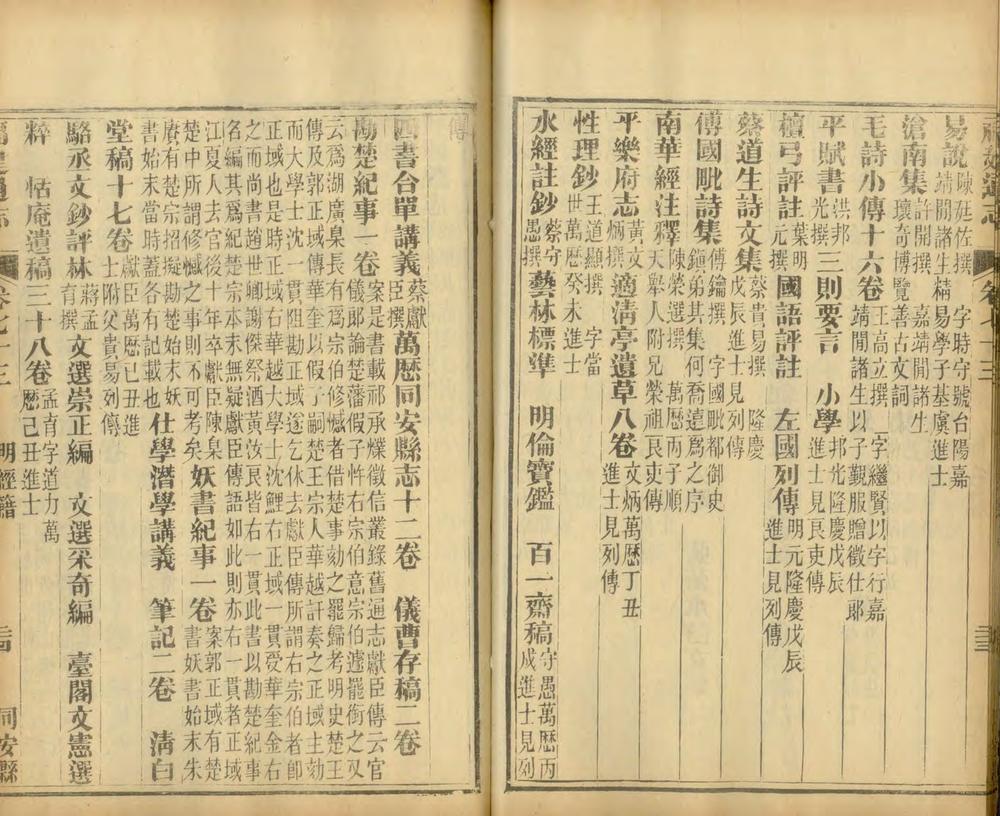 福建通志 卷七十三
易說陳廷佐撰 字時守號台陽嘉靖間諸生精易學子基虞進士
滄南集許開撰 嘉靖間諸生瓌奇博覽善古文詞
毛詩小傳十六卷王高立撰 字繼賢以字行嘉靖間諸生以子覲服贈徵仕郎
平賦書洪邦光撰 三則要言 小學邦光隆慶戊辰進士見良吏傳
檀弓評註葉明元撰 國語評註 左國列傳明元隆慶戊辰進士見列傳
蔡道生詩文集蔡貴易撰 隆慶戊辰進士見列傳
傅國毗詩集傅鑰撰 字國毗都御史鎮弟其集何喬遠爲之序
南華經注釋陳榮選撰 萬曆丙子順天舉人附兄榮祖良吏傳
平樂府志黃文炳撰 適淸亭遺草八卷文炳萬曆丁丑進士見列傳
性理鈔王道顯撰 字當世萬曆癸未進士
水經註鈔蔡守愚撰 藝林標準 明倫寶鑑 百一齋稿守愚萬曆丙戌進士見列
傳
四書合單講義蔡獻臣撰 萬曆同安縣志十二卷 儀曹存稿二卷
勘楚紀事一卷案是書載祁承㸁徵信叢錄舊通志獻臣傳云官儀郎論楚藩假子忤右宗伯意宗伯遽罷銜之又
云爲湖廣臬長有爲宗伯修憾者借楚事劾之罷歸考明史楚王傳及郭正域傳華奎以假子嗣楚王宗人華越訐奏之正域主勘
而大學士沈一貫阻勘正域遂乞休去獻臣傳所謂右宗伯者卽正域也是時正域右華越大學士沈鯉右正域一貫受華奎金右
之而尚書趙世卿謝傑祭酒黃汝良皆右一貫此書以勘楚紀事名編其爲紀楚宗本末無疑獻臣傳語如此則亦右一貫者正域
江夏人去官後十年卒獻臣陳臬楚中所謂修憾之事則不可考矣 妖書紀事一卷案郭正域有楚
書始末當時蓋各有記載也 仕學潛學講義 筆記二卷 淸白
堂稿十七卷獻臣萬曆已丑進士附父貴易列傳
駱丞文鈔評林蔣孟育撰 文選崇正編 文選采奇編 臺閣文憲選
粹 恬庵遺稿三十八卷孟育字道力萬曆己丑進士
福建通志 卷七十三 明經籍 同安縣